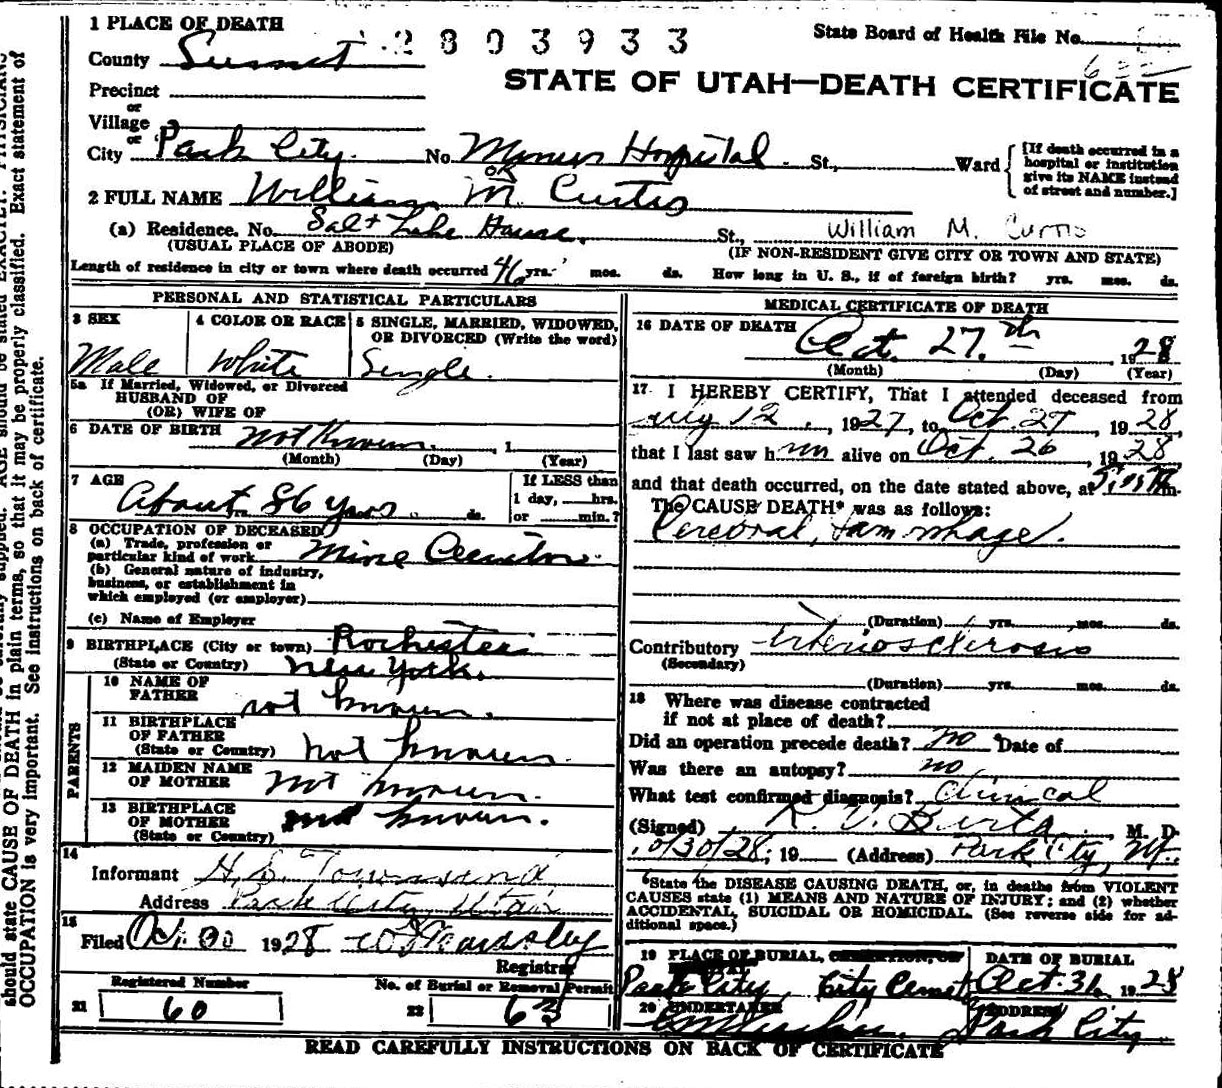 1 PLACE OF DEATH
2803933
State Board of Health File No.
County Summit
STATE OF UTAH—DEATH CERTIFICATE
Precinct
or
Village
or
City Park City. No. Miners Hospital St., Ward
[If death occurred in a hospital or institution give its NAME instead of street and number.]
2 FULL NAME William M. Curtis
or
(a) Residence. No. Salt Lake House, St., William M. Curtis
(USUAL PLACE OF ABODE) (IF NON-RESIDENT GIVE CITY OR TOWN AND STATE)
Length of residence in city or town where death occurred 46 yrs. mos. ds. How long in U. S., if of foreign birth? yrs. mos. ds.
PERSONAL AND STATISTICAL PARTICULARS
3 SEX 4 COLOR OR RACE 5 SINGLE, MARRIED, WIDOWED, OR DIVORCED (Write the word)
Male White Single.
5a If Married, Widowed, or Divorced
HUSBAND OF
(OR) WIFE OF
6 DATE OF BIRTH not known. , 1
(Month) (Day) (Year)
7 AGE If LESS than
About 86 yrs. ds. 1 day, hrs.
or min.?
8 OCCUPATION OF DECEASED
(a) Trade, profession or
particular kind of work Mine
(b) General nature of industry,
business, or establishment in
which employed (or employer)
(c) Name of Employer
9 BIRTHPLACE (City or town) Rochester
(State or Country) New York.
PARENTS
10 NAME OF
FATHER not known.
11 BIRTHPLACE
OF FATHER
(State or Country) not known
12 MAIDEN NAME
OF MOTHER not known.
13 BIRTHPLACE
OF MOTHER
(State or Country) not known.
14
Informant H. S. Townsend
Address Park City, Utah
15
Filed Oct. 30 1928
Registrar
Registered Number No. of Burial or Removal Permit
21 60 22 63
MEDICAL CERTIFICATE OF DEATH
16 DATE OF DEATH Oct. 27.th , 1928
(Month) (Day) (Year)
17 I HEREBY CERTIFY, That I attended deceased from
12, 1927, to Oct. 27 1928
that I last saw him alive on Oct. 26, 1928
and that death occurred, on the date stated above, at m.
The CAUSE DEATH* was as follows:
Cerebral,
(Duration) yrs. mos. ds.
Contributory Arteriosclerosis
(Secondary)
(Duration) yrs. mos. ds.
18 Where was disease contracted
if not at place of death?
Did an operation precede death? no Date of
Was there an autopsy? no
What test confirmed diagnosis? Clinical
(Signed) M. D.
10/30/28; 19 (Address) Park City, Ut.
*State the DISEASE CAUSING DEATH, or, in deaths from VIOLENT
CAUSES state (1) MEANS AND NATURE OF INJURY; and (2) whether
ACCIDENTAL, SUICIDAL OR HOMICIDAL. (See reverse side for ad-
ditional space.)
19 PLACE OF BURIAL, CREMATION, OR DATE OF BURIAL
Park City, City Cemet Oct. 31, 1928
20 UNDERTAKER ADDRESS
Park City.
READ CAREFULLY INSTRUCTIONS ON BACK OF CERTIFICATE
should state CAUSE OF DEATH in plain terms, so that it may be properly classified. Exact statement of
OCCUPATION is very important. See instructions on back of certificate.